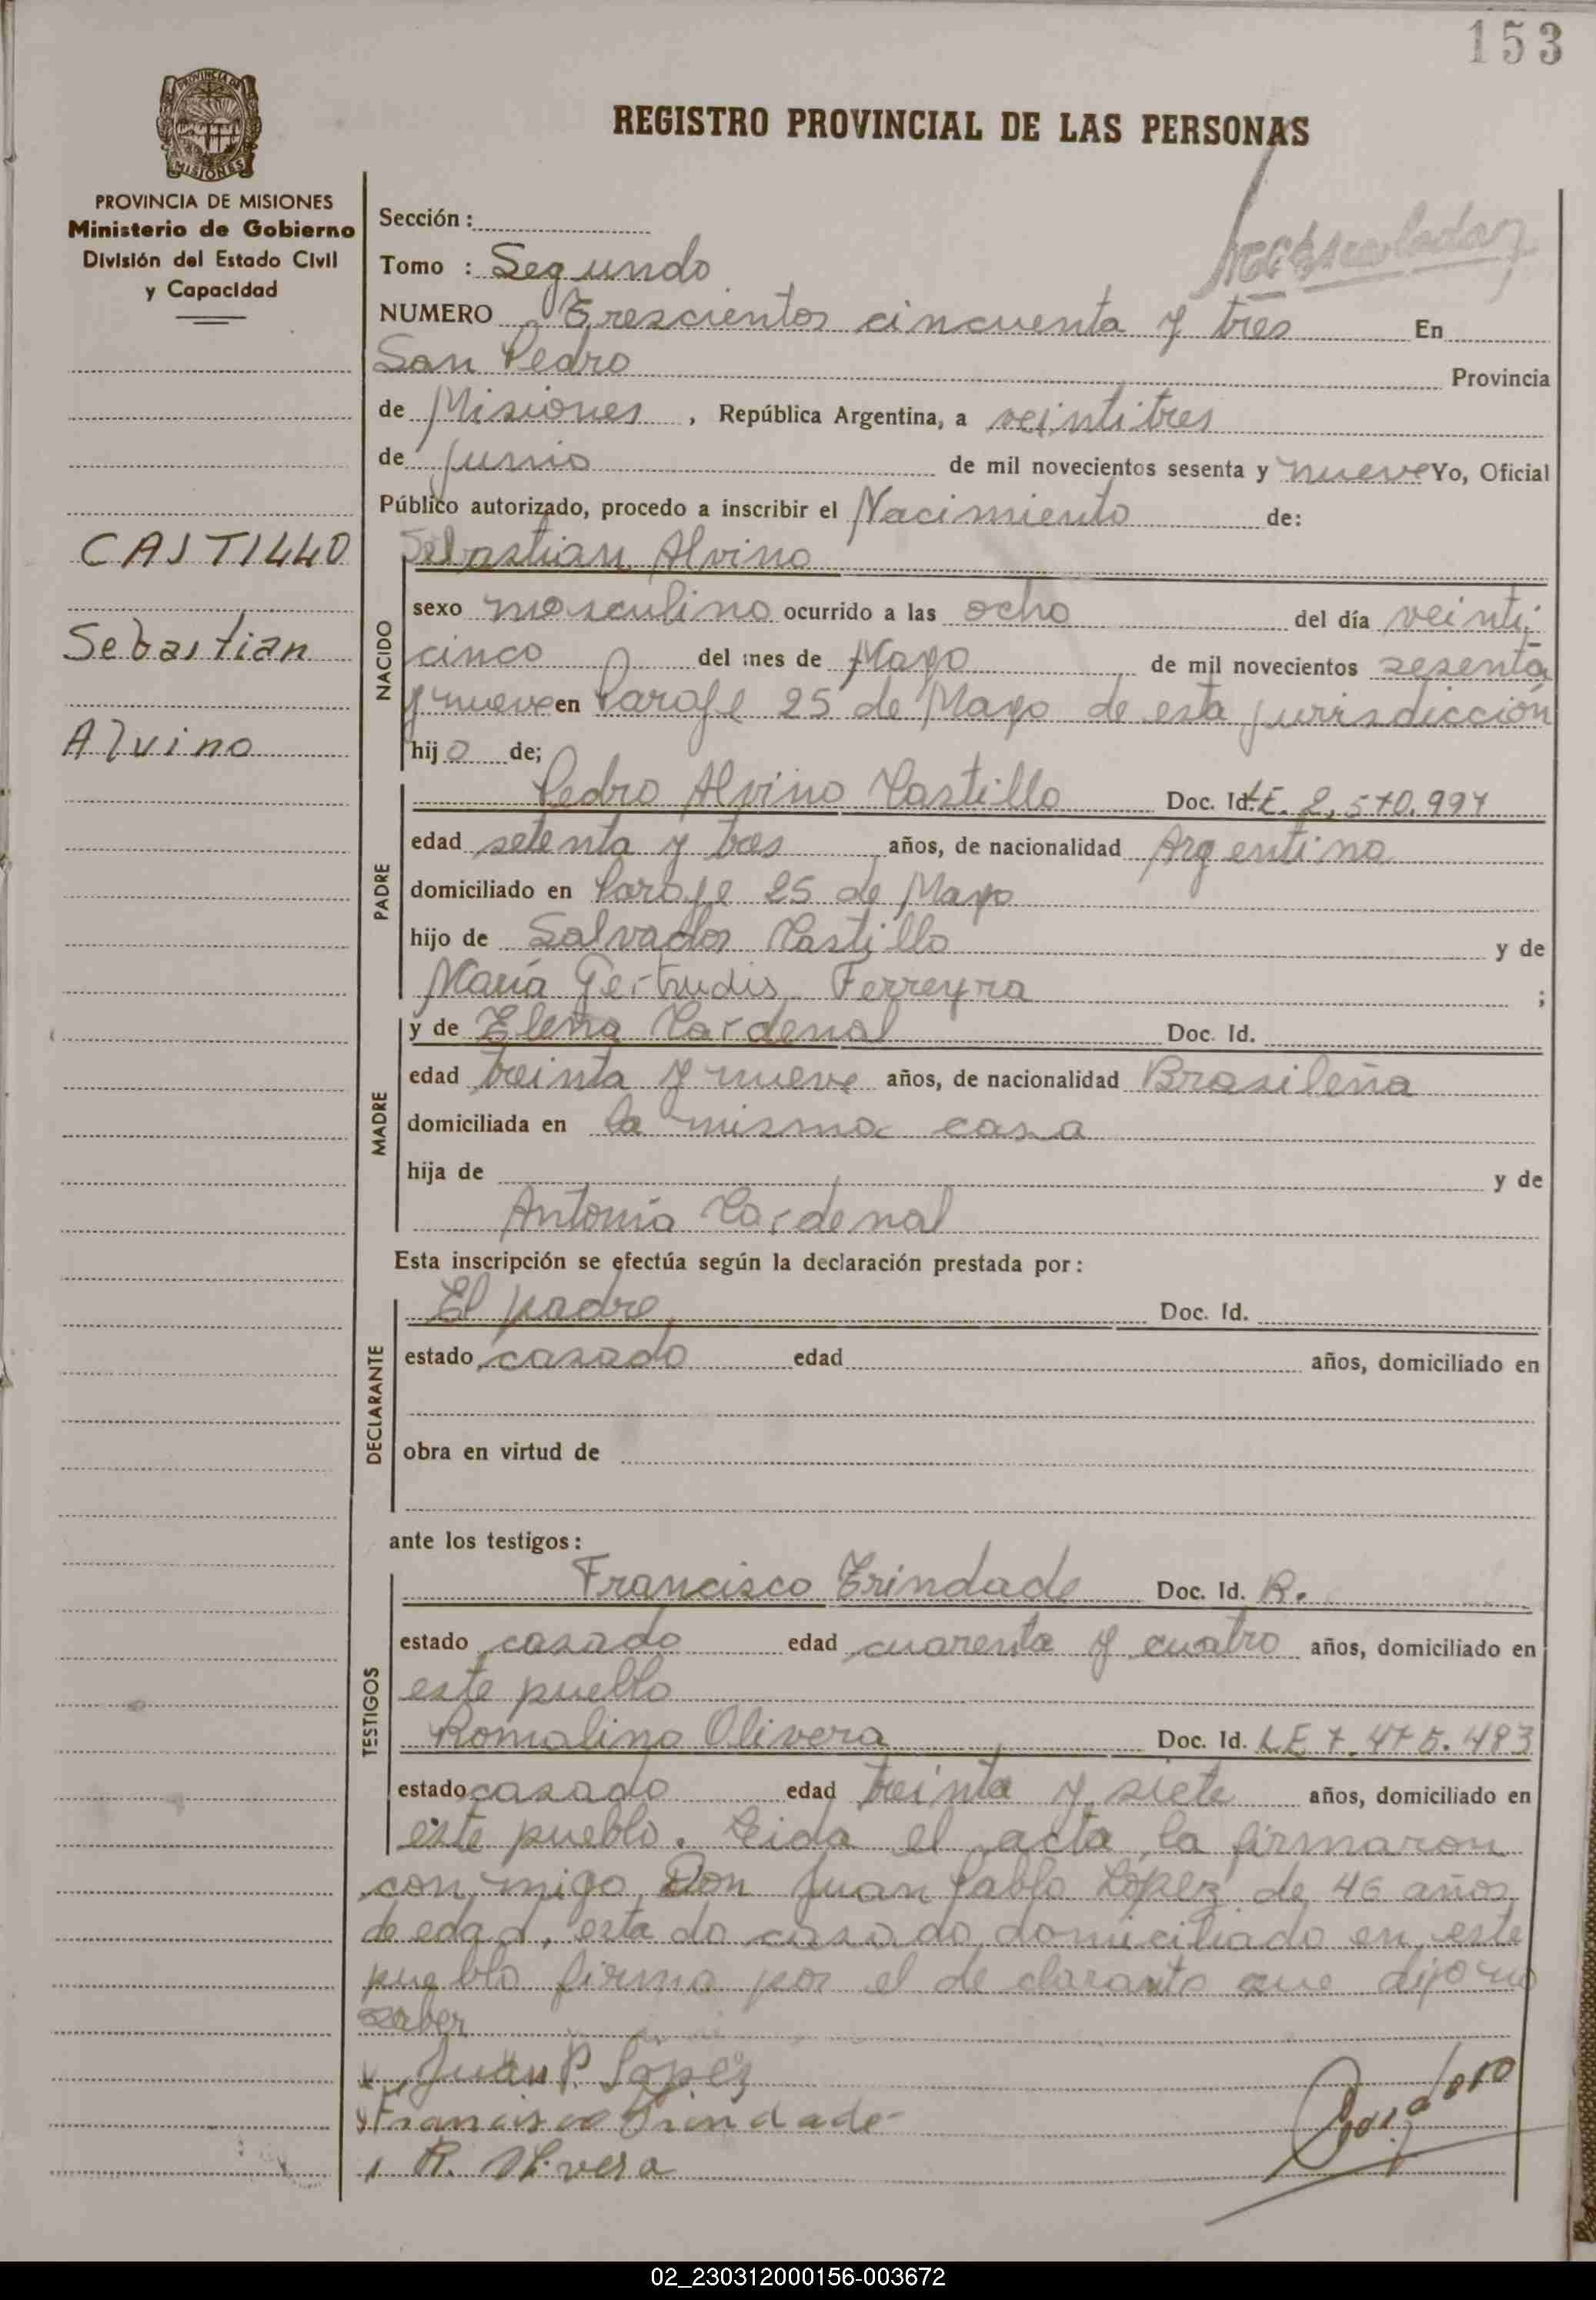 153
PROVINCIA DE
MISIONES
REGISTRO PROVINCIAL DE LAS PERSONAS
PROVINCIA DE MISIONES
Ministerio de Gobierno
División del Estado Civil
y Capacidad
CASTILLO
Sebastian
Alvino
Sección :
Tomo : Segundo
NUMERO Trescientos cincuenta y tres En
San Pedro Provincia
de Misiones , República Argentina, a veintitres
de junio de mil novecientos sesenta y nueve Yo, Oficial
Público autorizado, procedo a inscribir el Nacimiento de:
Sebastian Alvino
NACIDO
sexo masculino ocurrido a las ocho del día veinti-
cinco del mes de Mayo de mil novecientos sesenta
y nueve en Paraje 25 de Mayo de esta jurisdicción
hijo de;
PADRE
Pedro Alvino Castillo Doc. Id. LE. 2,570.997
edad setenta y tres años, de nacionalidad Argentina
domiciliado en Paraje 25 de Mayo
hijo de Salvador Castillo y de
María Gertrudis Ferreyra ;
MADRE
y de Elena Cardenal Doc. Id.
edad treinta y nueve años, de nacionalidad Brasileña
domiciliada en la misma casa
hija de y de
Antonia Cardenal
Esta inscripción se efectúa según la declaración prestada por :
DECLARANTE
El padre Doc. Id.
estado casado edad años, domiciliado en
obra en virtud de
ante los testigos :
TESTIGOS
Francisco Trindade Doc. Id. R.
estado casado edad cuarenta y cuatro años, domiciliado en
este pueblo
Romalino Olivera Doc. Id. LE 7.475.483
estado casado edad treinta y siete años, domiciliado en
este pueblo. Leida el acta la firmaron
con migo Don Juan Pablo López de 46 años
de edad, estado casado domiciliado en este
pueblo firma por el declarante que dijo no
saber
Juan P. Lopez
Francisco Trindade
R. Olivera
02_230312000156-003672